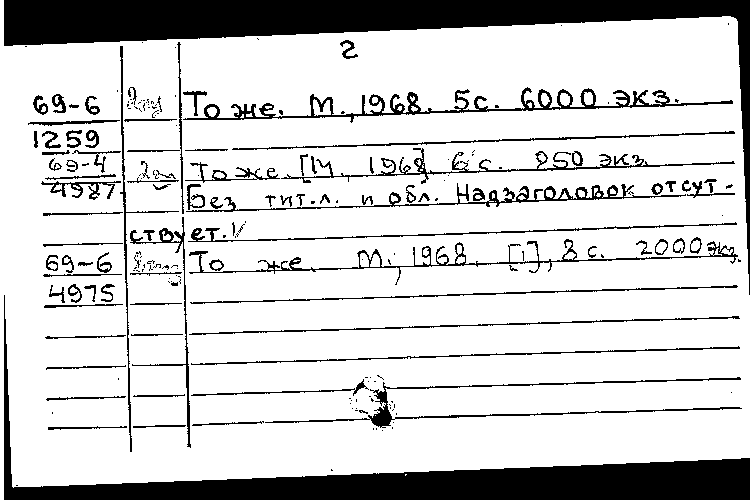 2
69-6 То же. М., 1968. 5с. 6000 экз.
1259
69-4 То же. [М., 1968] 6 с. 850 экз.
4987 Без тит.л. и обл. Надзаголовок отсут-
ствует.
69-6 То же. М., 1968. [1], 8 с. 2000 экз.
4975